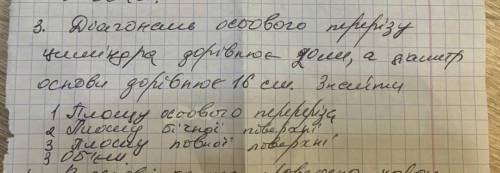 3. Діагональ осьового перерізу
циліндра дорівнює 20см, а діаметр
основи дорівнює 16 см. Знайти
1 Площу осьового перереріза
2 Площу бічної поверхні
3 Площу повної поверхні
3 Об'єм.